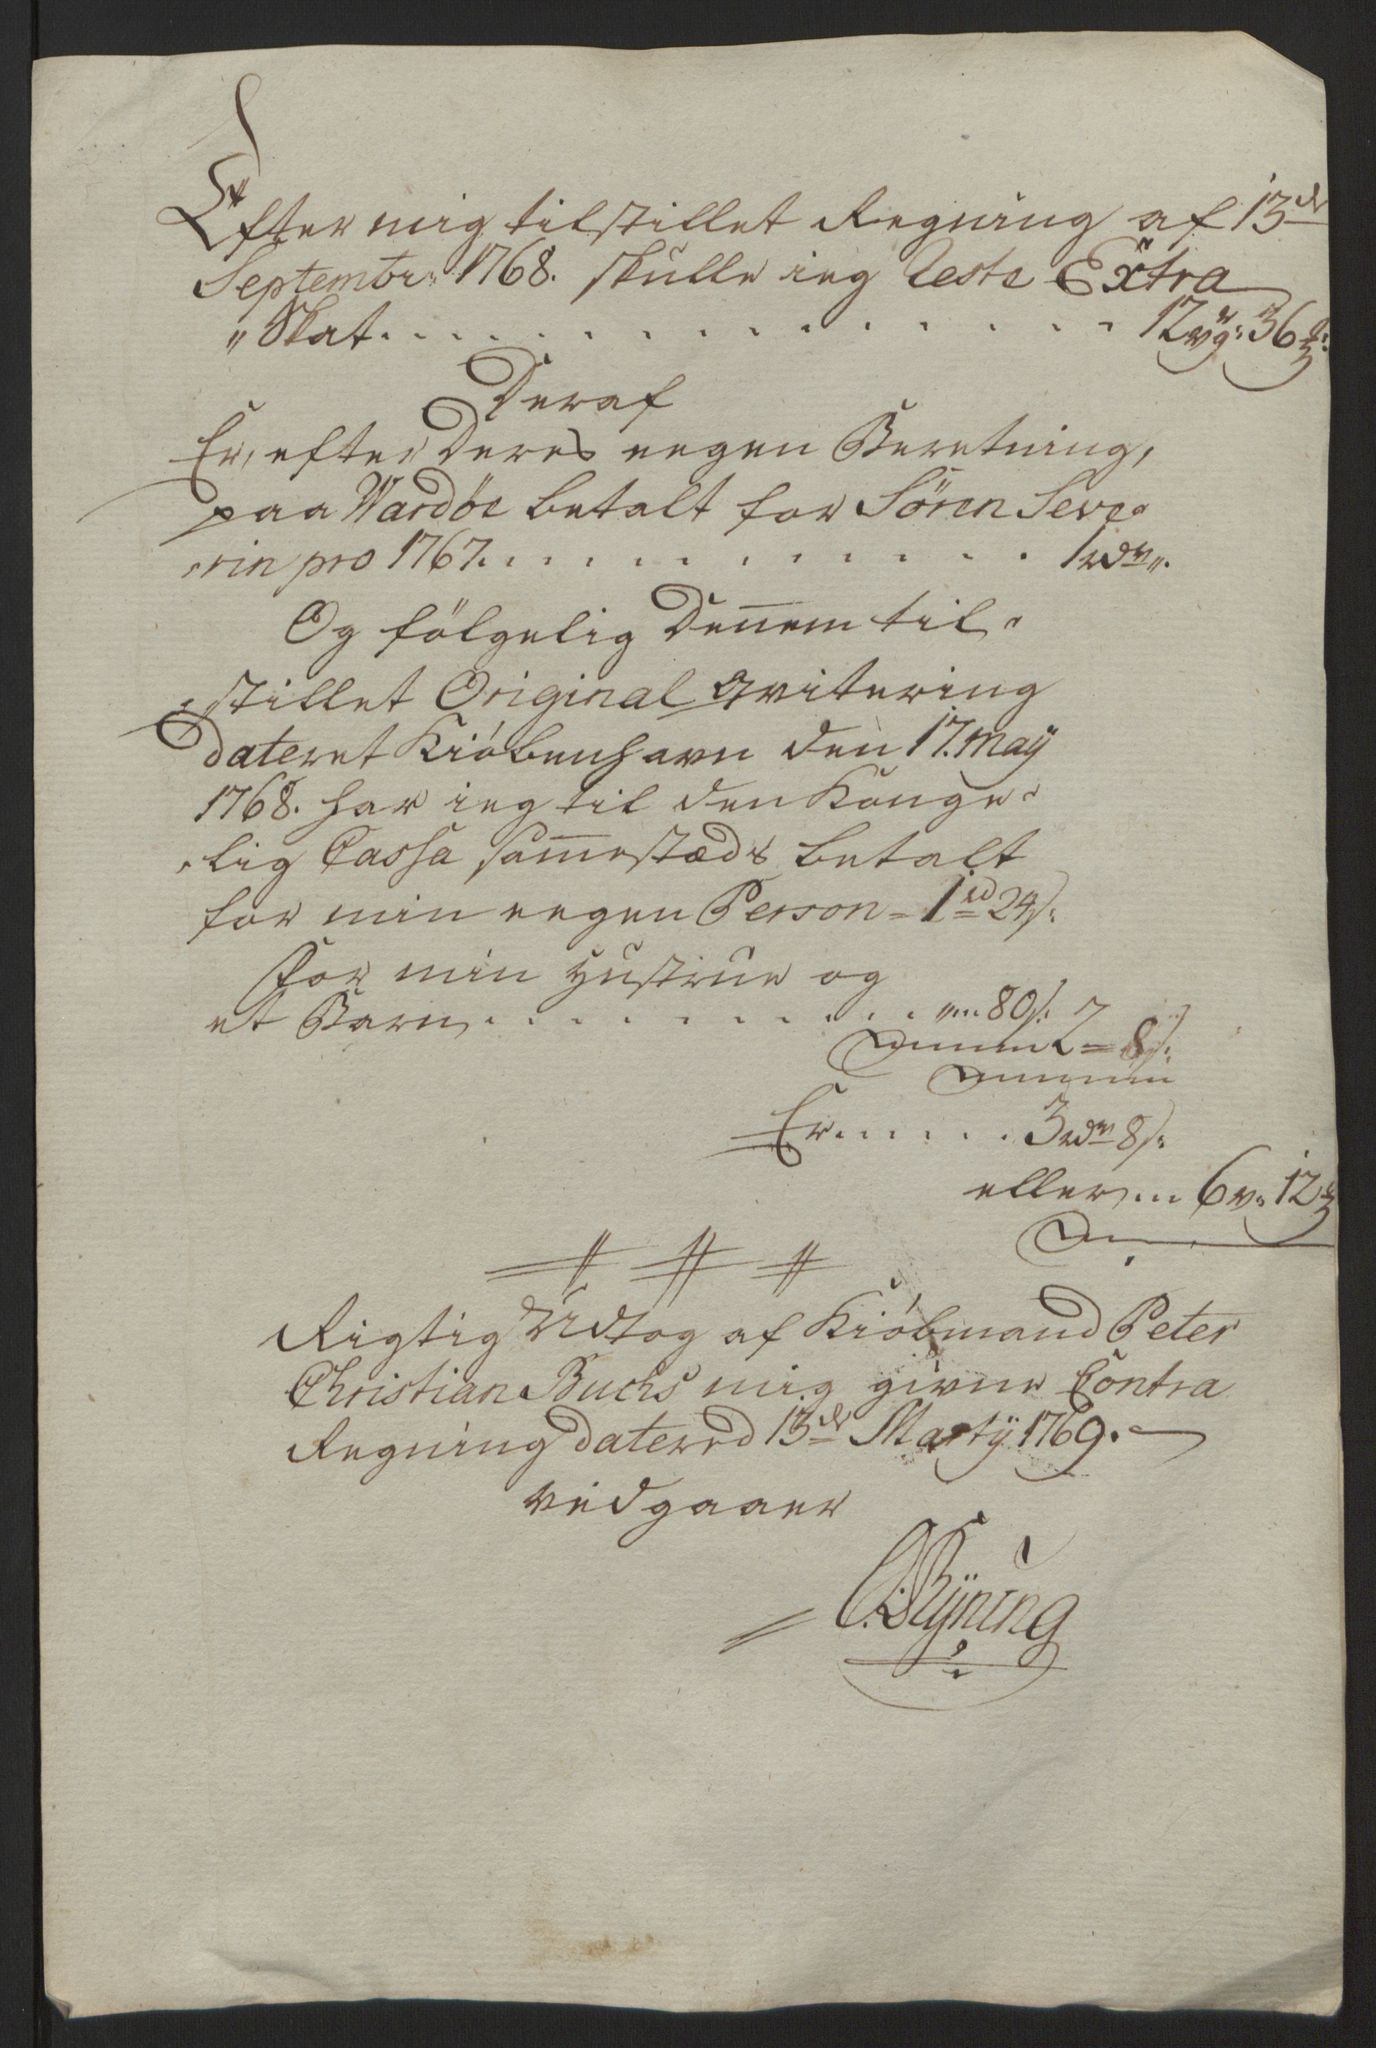 Efter mig tilstillet Regning af 13de
Septembr: 1768. skulle ieg Reste Extra
"Skat. . . . . . . . . . . . . . . . 12 vgr: 36 ℔:
Deraf
Er, efter Deres eegen Beretning,
paa Wardöe betalt for Sören Seve-
-rin pro 1767. . . . . . . . . . . 1 rdr ".
Og fölgelig Dennem til-
-stillet Original Qvitering
dateret Kiöbenhavn den 17. Maÿ
1768. har ieg til den Konge-
-lig Cassa sam̅estæds betalt
for min eegen Person = 1 rd 24 s:
For min Hustrue og
et Barn . . . . . . . . . " 80 s: 2
2 = 8 s:
Er. . . . . . 3 rdr 8 s:
eller .. 6 v: 12 ℔
Rigtig Udtog af Kiöbmand Peter
Christian Buchs mig givne Contra
Regning daterrd 13de Martÿ 1769.
vedgaaer
C. Rÿning